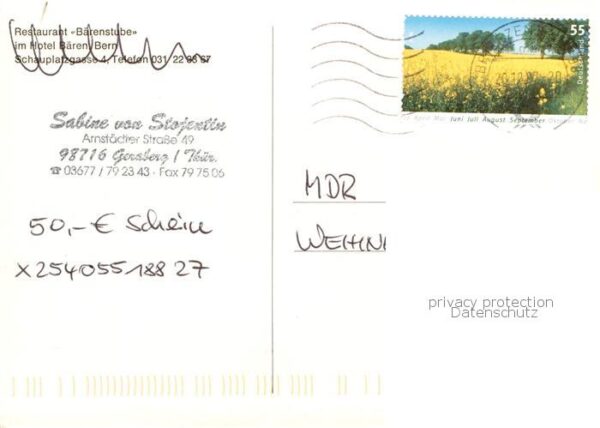 Restaurant «Bärenstube»
im Hotel Bären, Bern
Schauplatzgasse 4, Telefon 031 22 33 67
55
Deutschland
April Mai Juni Juli August September Oktober
Sabine von Stojentin
Arnstädter Straße 49
98716 Geraberg / Thür.
☎ 03677 / 79 23 43 · Fax 79 75 06
50,- € Schein
X25405518827
MDR
WEIHN
privacy protection
Datenschutz